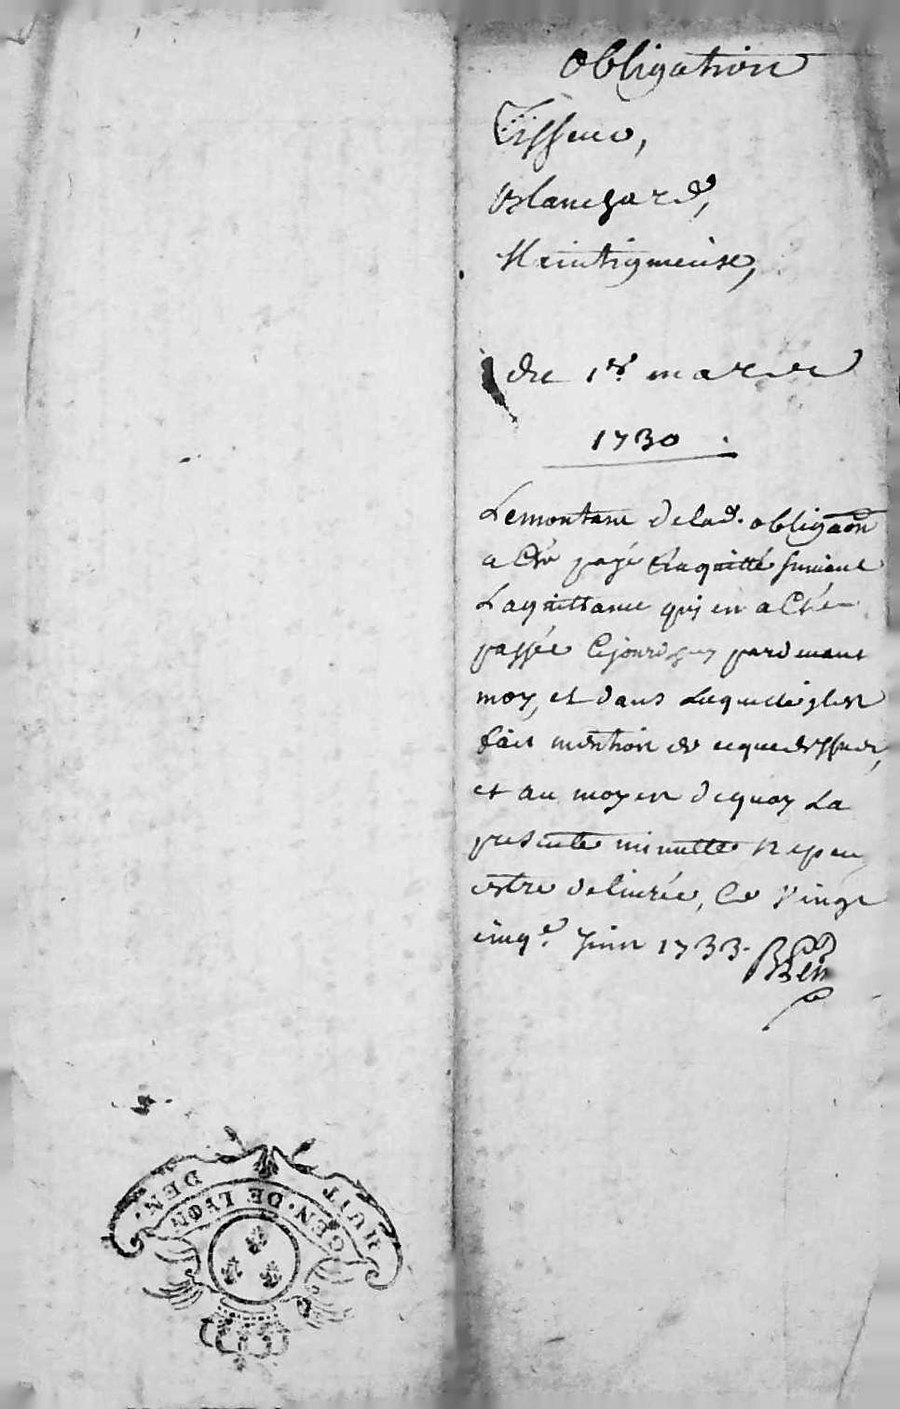 obligation
Tisseur,
Blanchard,
Maintigneuse,
du 1er. mars
1730
Le montant de lad. obligaon
a été payé et aquitté suivant
La quittance qui en a été
passée Cejourdhuy pardevant
moy, et dans Laquelle il est
fait mention de ceque dessus,
et au moyen dequoy La
presente minutte ne peu
estre delivrée, Ce vingt
cinqe. Juin 1733.
HUIT DEN.
GEN. DE LYON